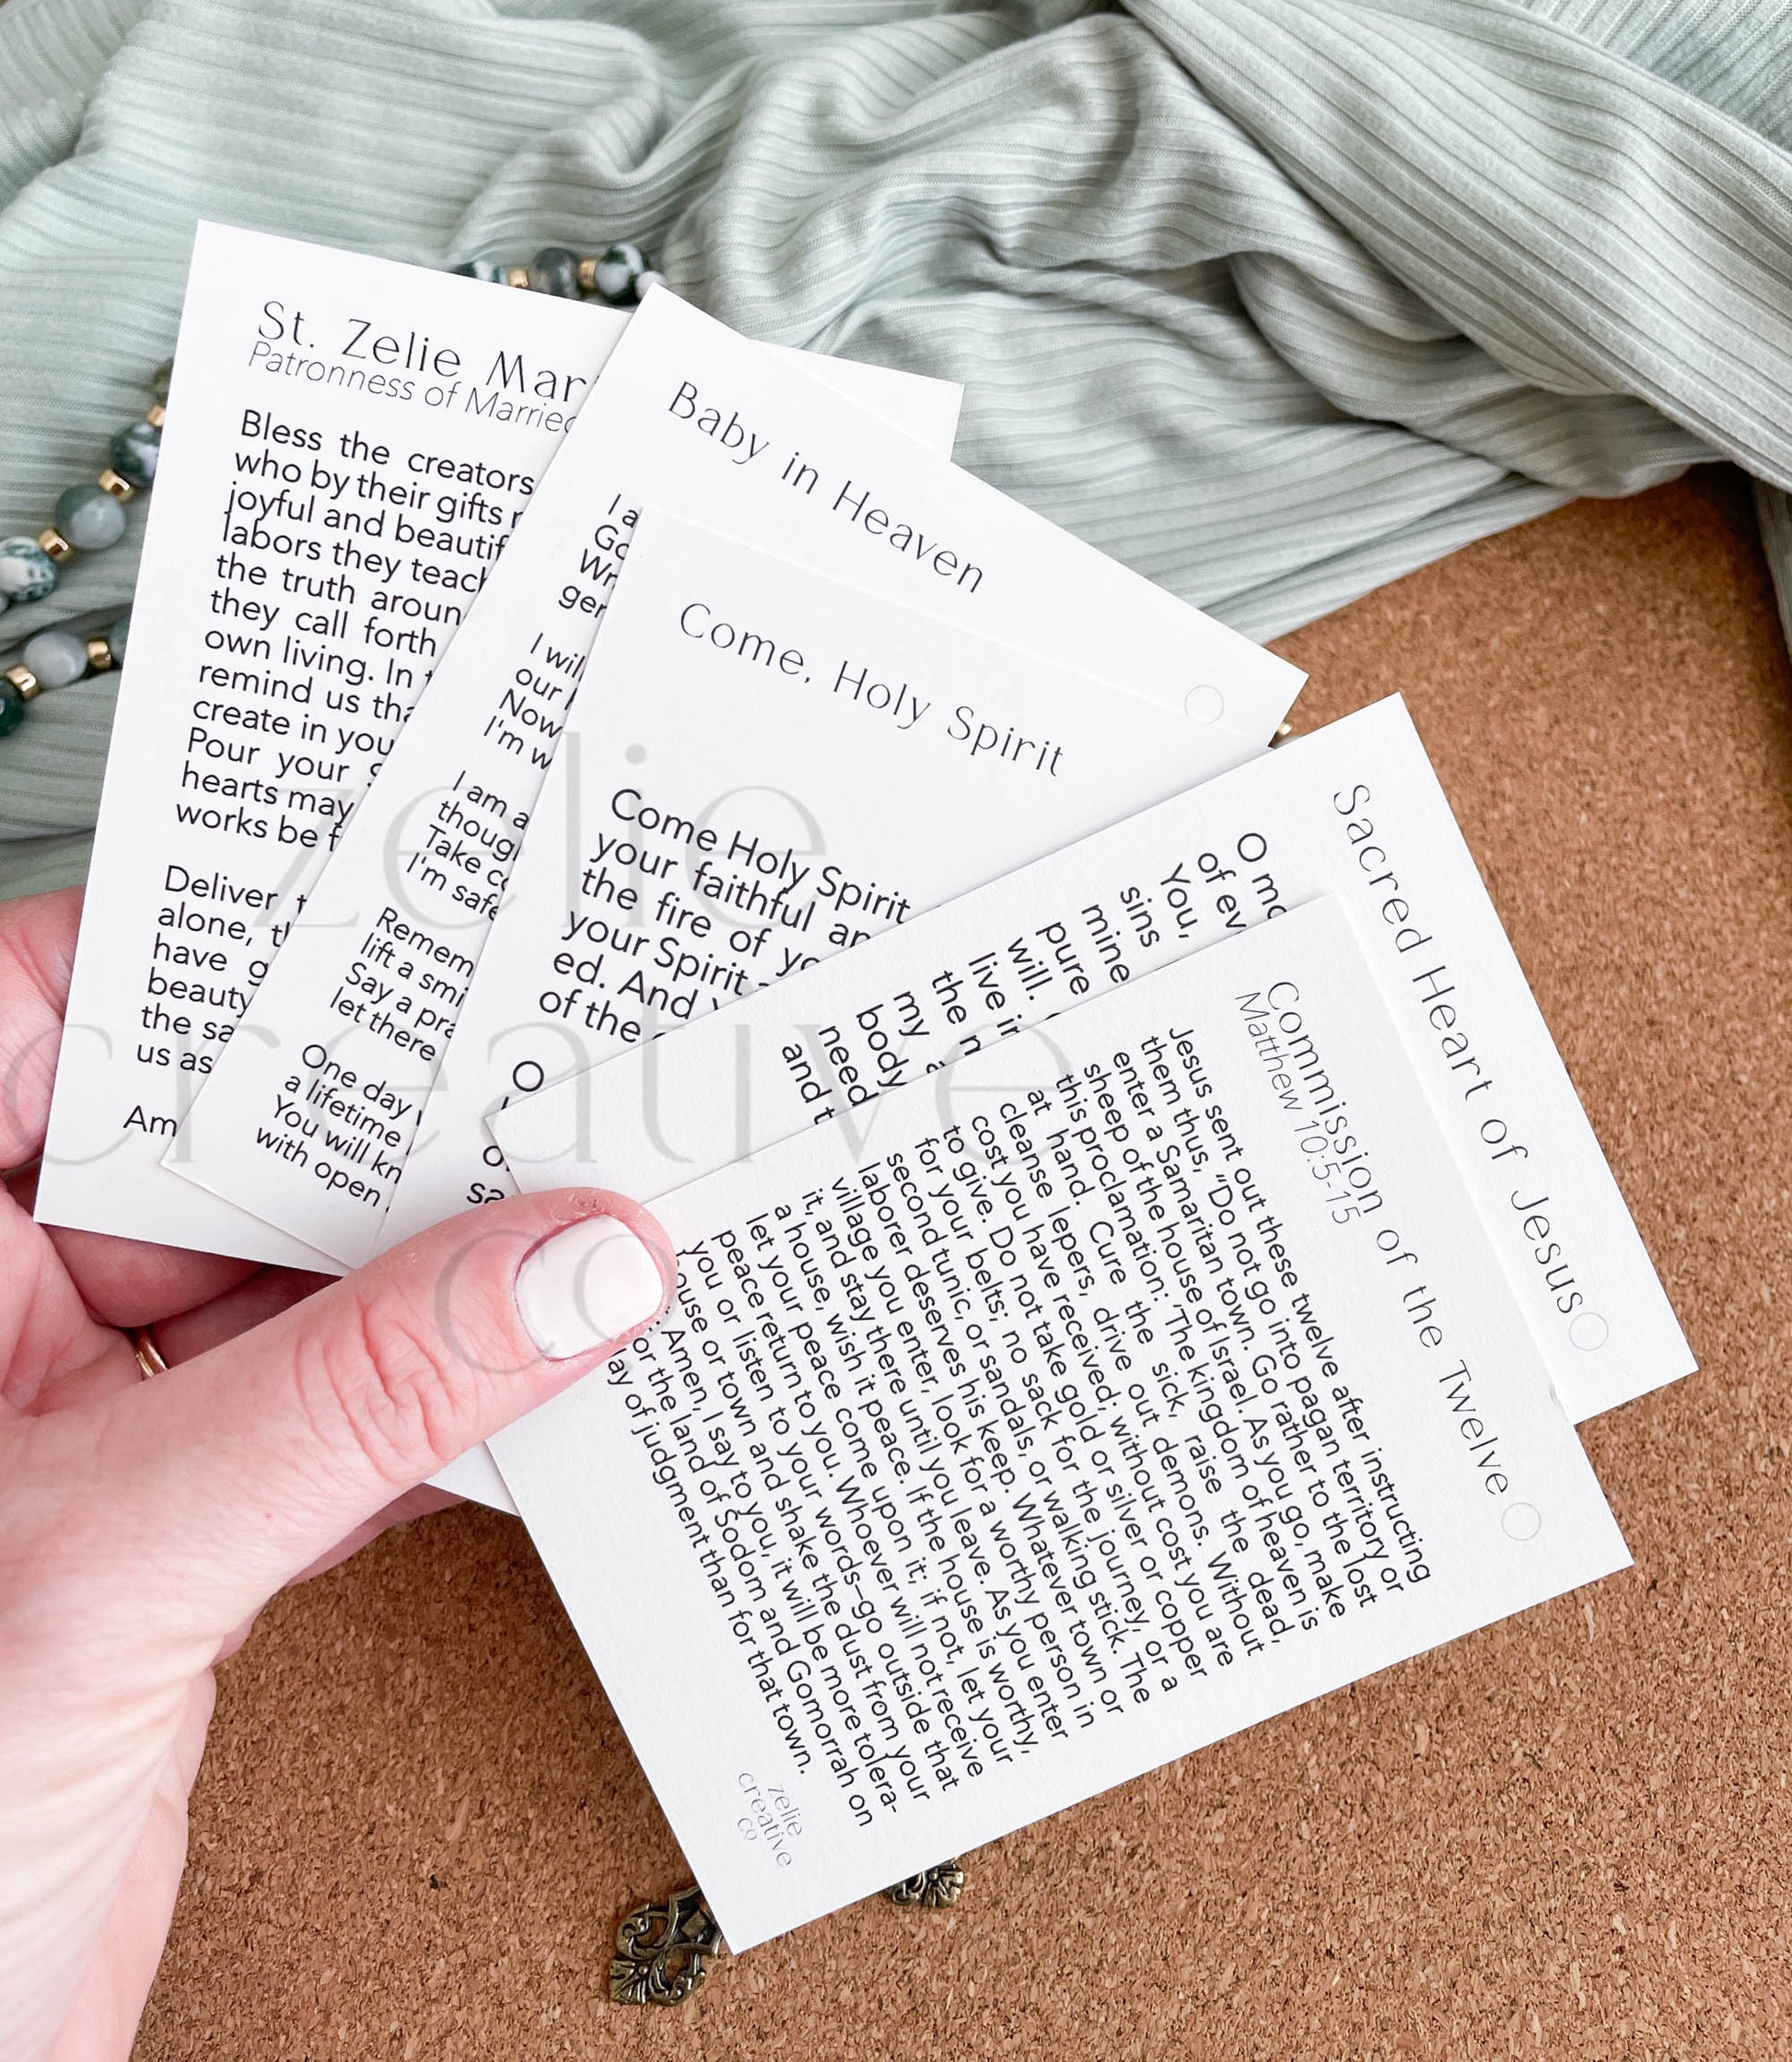 St. Zelie Mar
Patronness of Married
Bless the creators
who by their gifts
joyful and beautif
labors they teach
the truth aroun
they call forth
own living. In
remind us tha
create in you
Pour your
hearts may
works be f
Deliver
alone,
have g
beauty
the sa
us as
Am
Baby in Heaven
I a
Go
Wr
ger
I wil
our
Now
I'm w
I am a
though
Take co
I'm safe
Remem
lift a smi
Say a pra
let there
One day
a lifetime
You will kn
with open
Come, Holy Spirit
Come Holy Spirit
your faithful an
the fire of yo
your Spirit
ed. And
of the
O
sa
Sacred Heart of Jesus
O mo
of ev
You,
sins
mine
pure
will.
live in
the n
my a
body
need
and t
Commission of the Twelve
Matthew 10:5-15
Jesus sent out these twelve after instructing
them thus, "Do not go into pagan territory or
enter a Samaritan town. Go rather to the lost
sheep of the house of Israel. As you go, make
this proclamation: 'The kingdom of heaven is
at hand. Cure the sick, raise the dead,
cleanse lepers, drive out demons. Without
cost you have received; without cost you are
to give. Do not take gold or silver or copper
for your belts; no sack for the journey, or a
second tunic, or sandals, or walking stick. The
laborer deserves his keep. Whatever town or
village you enter, look for a worthy person in
it, and stay there until you leave. As you enter
a house, wish it peace. If the house is worthy,
let your peace come upon it; if not, let your
peace return to you. Whoever will not receive
you or listen to your words—go outside that
ouse or town and shake the dust from your
Amen, I say to you, it will be more tolera-
or the land of Sodom and Gomorrah on
lay of judgment than for that town.
zelie
creative
co
zelie
creative
co.